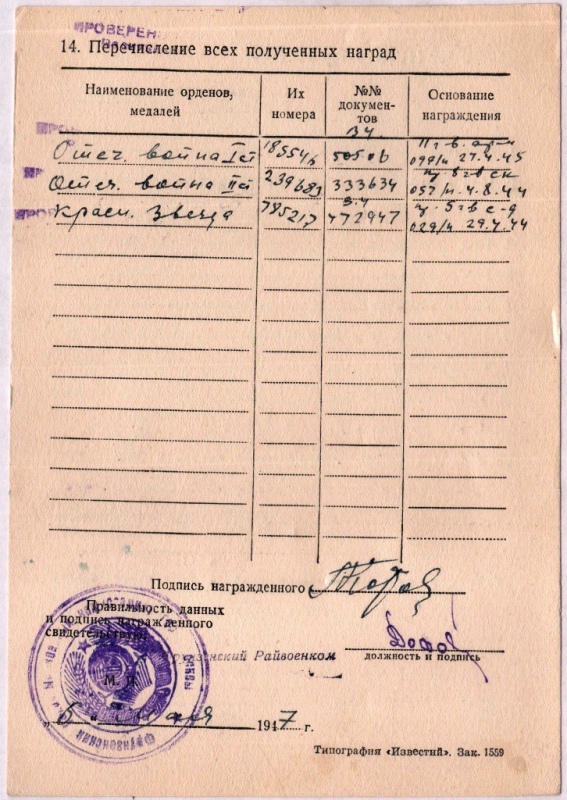 ПРОВЕРЕН
14. Перечисление всех полученных наград
Наименование орденов, медалей
Их номера
№№ документов
Основание награждения
Отеч. война I ст 185546 В4. 50506 099/н 27.4.45
Отеч. война II ст 239683 333634 057/н. 4.8.44
Красн. Звезда 785217 472947 029/н 29.4.44
Подпись награжденного
Правильность данных
и подпись награжденного
свидетельствую:
Фрунзенский Райвоенком
должность и подпись
М. П.
„6“ 1947 г.
Типография «Известий». Зак. 1559